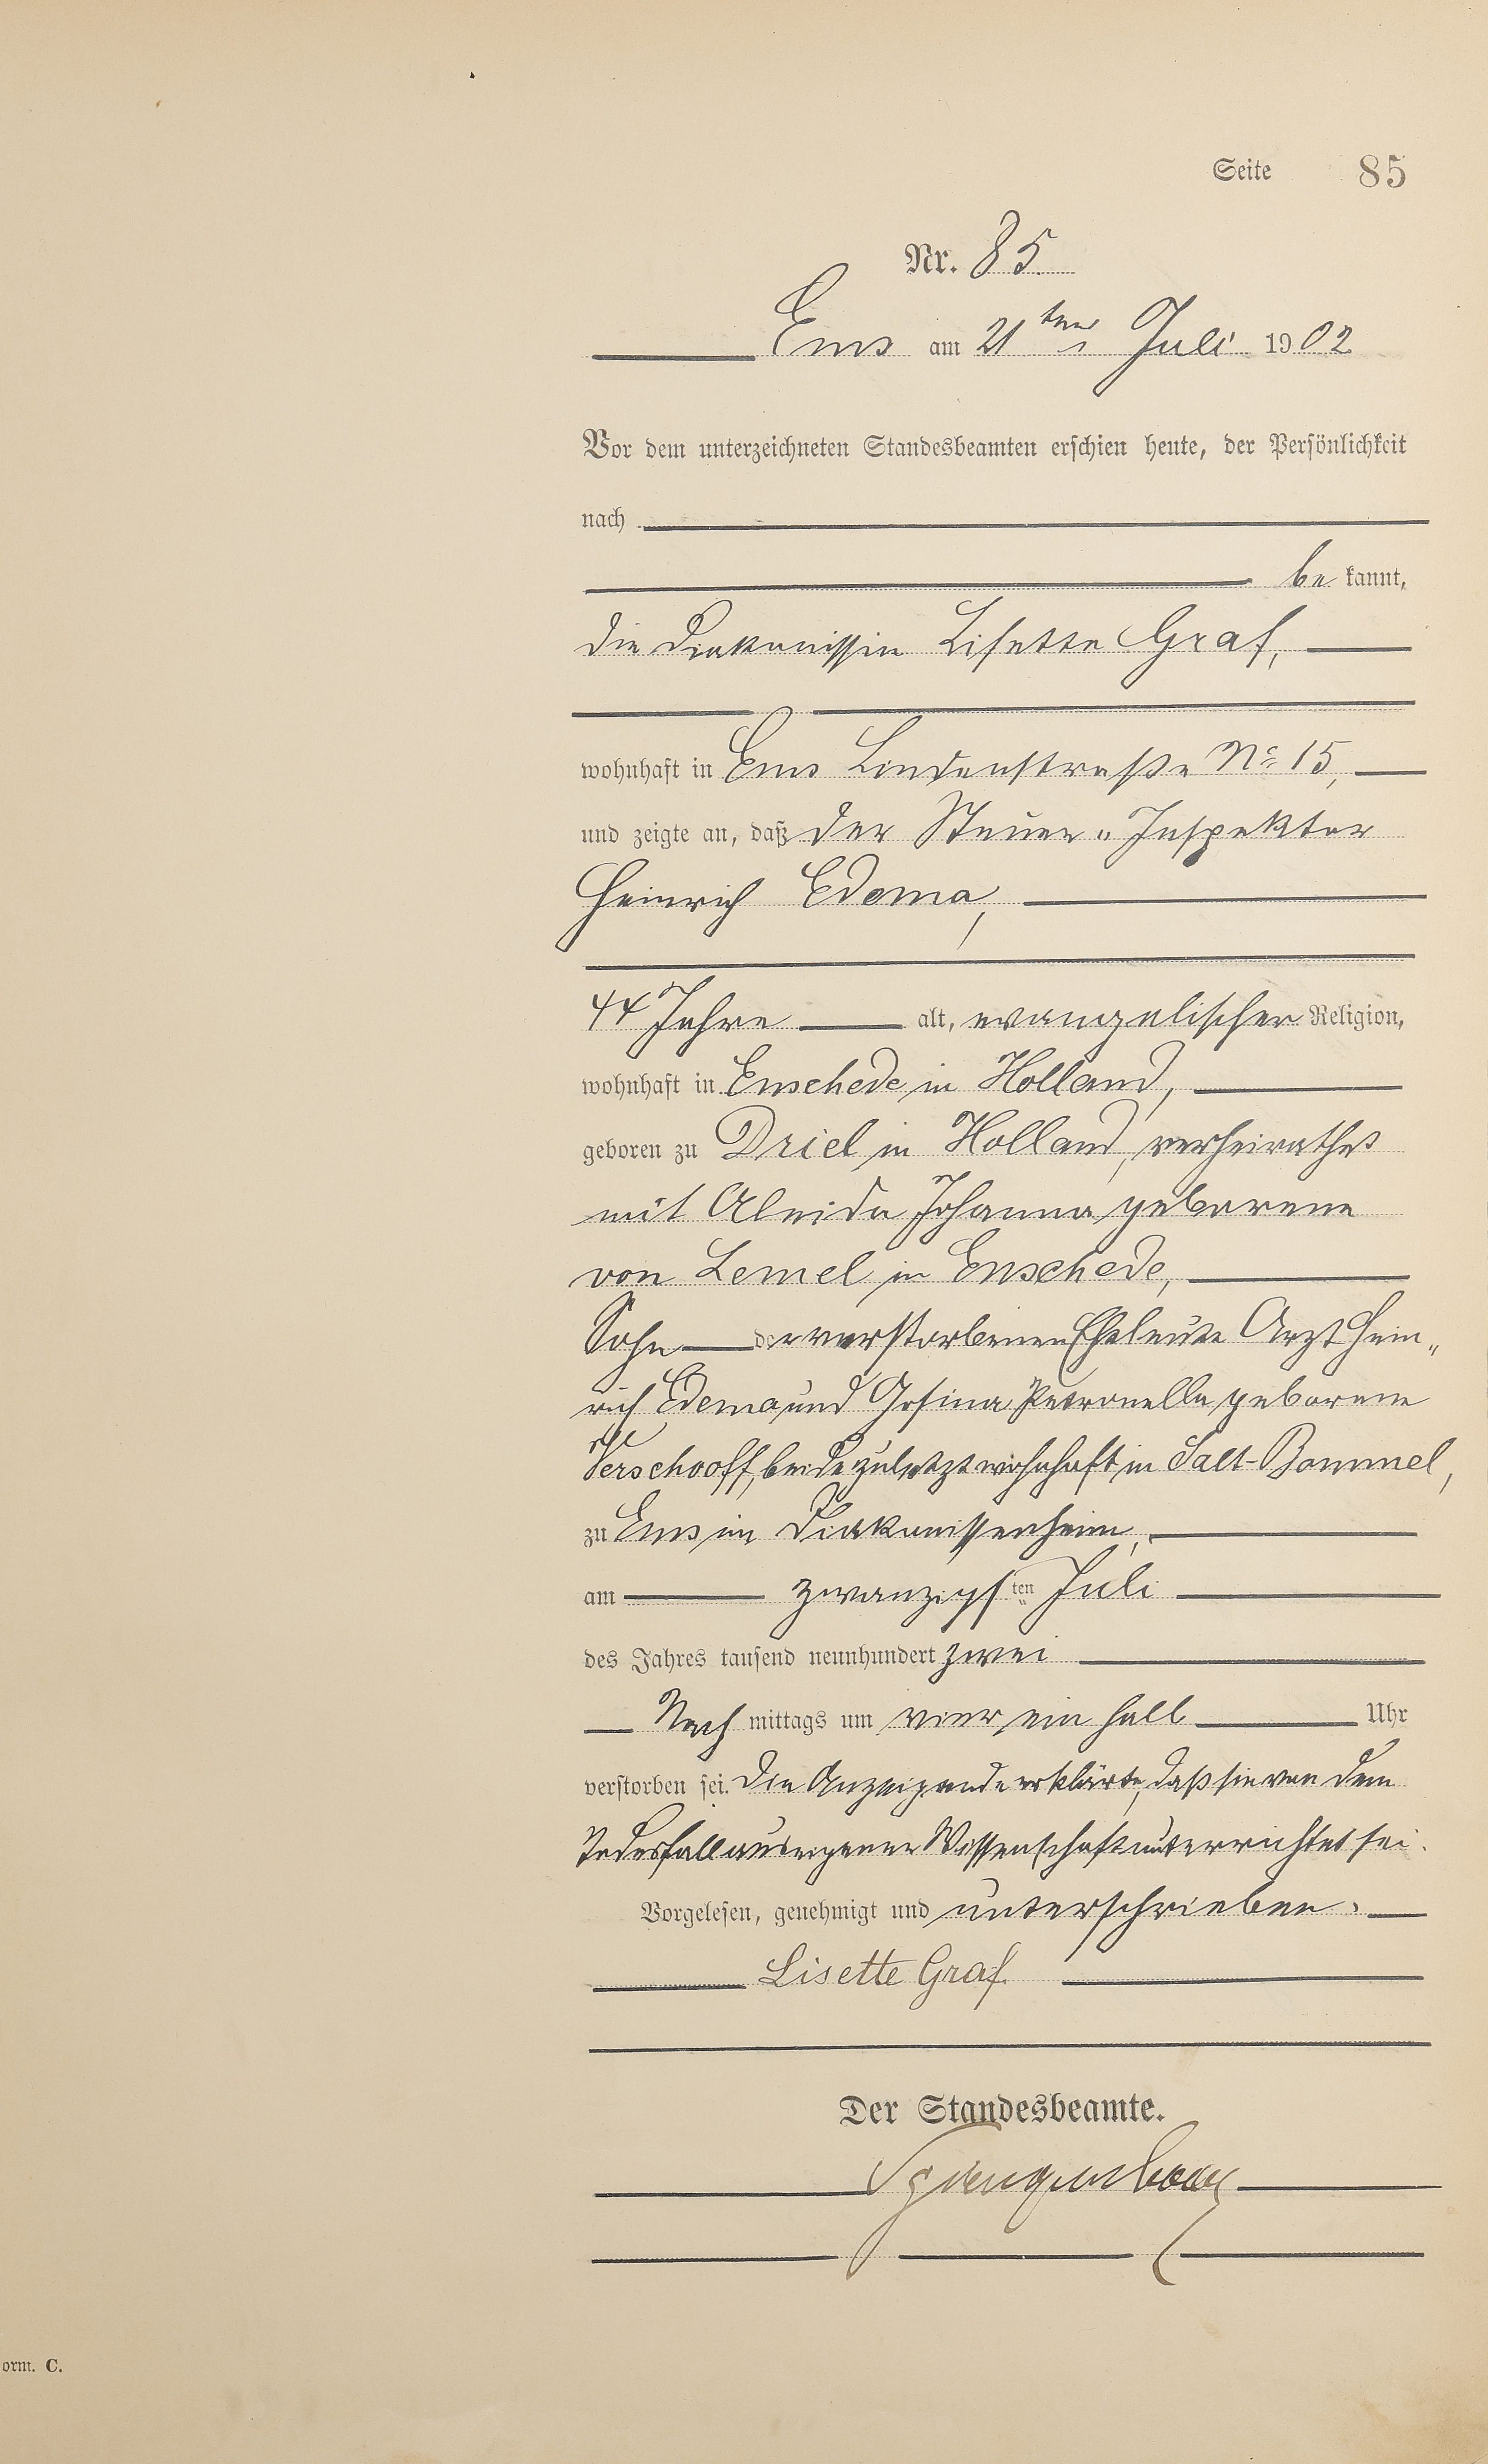 Seite 85
Nr. 85
Ems am 21ten Juli 1902
Vor dem unterzeichneten Standesbeamten erschien heute, der Persönlichkeit
nach
be kannt,
die Diakonissin Lisette Graf,
wohnhaft in Ems Lindenstraße No 15,
und zeigte an, daß der Steuer-Inspektor
Heinrich Edema,
44 Jahre alt, evangelischer Religion,
wohnhaft in Enschede in Holland,
geboren zu Driel in Holland, verheirathet
mit Aleida Johanna geborene
von Lemel in Enschede,
Sohn der verstorbenen Eheleute Arzt Hein„
rich Edema und Gosina Petronella geborene
Verschooff, beide zuletzt wohnhaft in Salt-Bommel,
zu Ems im Diakonissenheim,
am zwanzigsten Juli
des Jahres tausend neunhundert zwei
Nachmittags um vier ein halb Uhr
verstorben sei. Die Anzeigende erklärte, daß sie von dem
Todesfall aus eigener Wissenschaft unterrichtet sei.
Vorgelesen, genehmigt und unterschrieben.
Lisette Graf.
Der Standesbeamte.
orm. C.